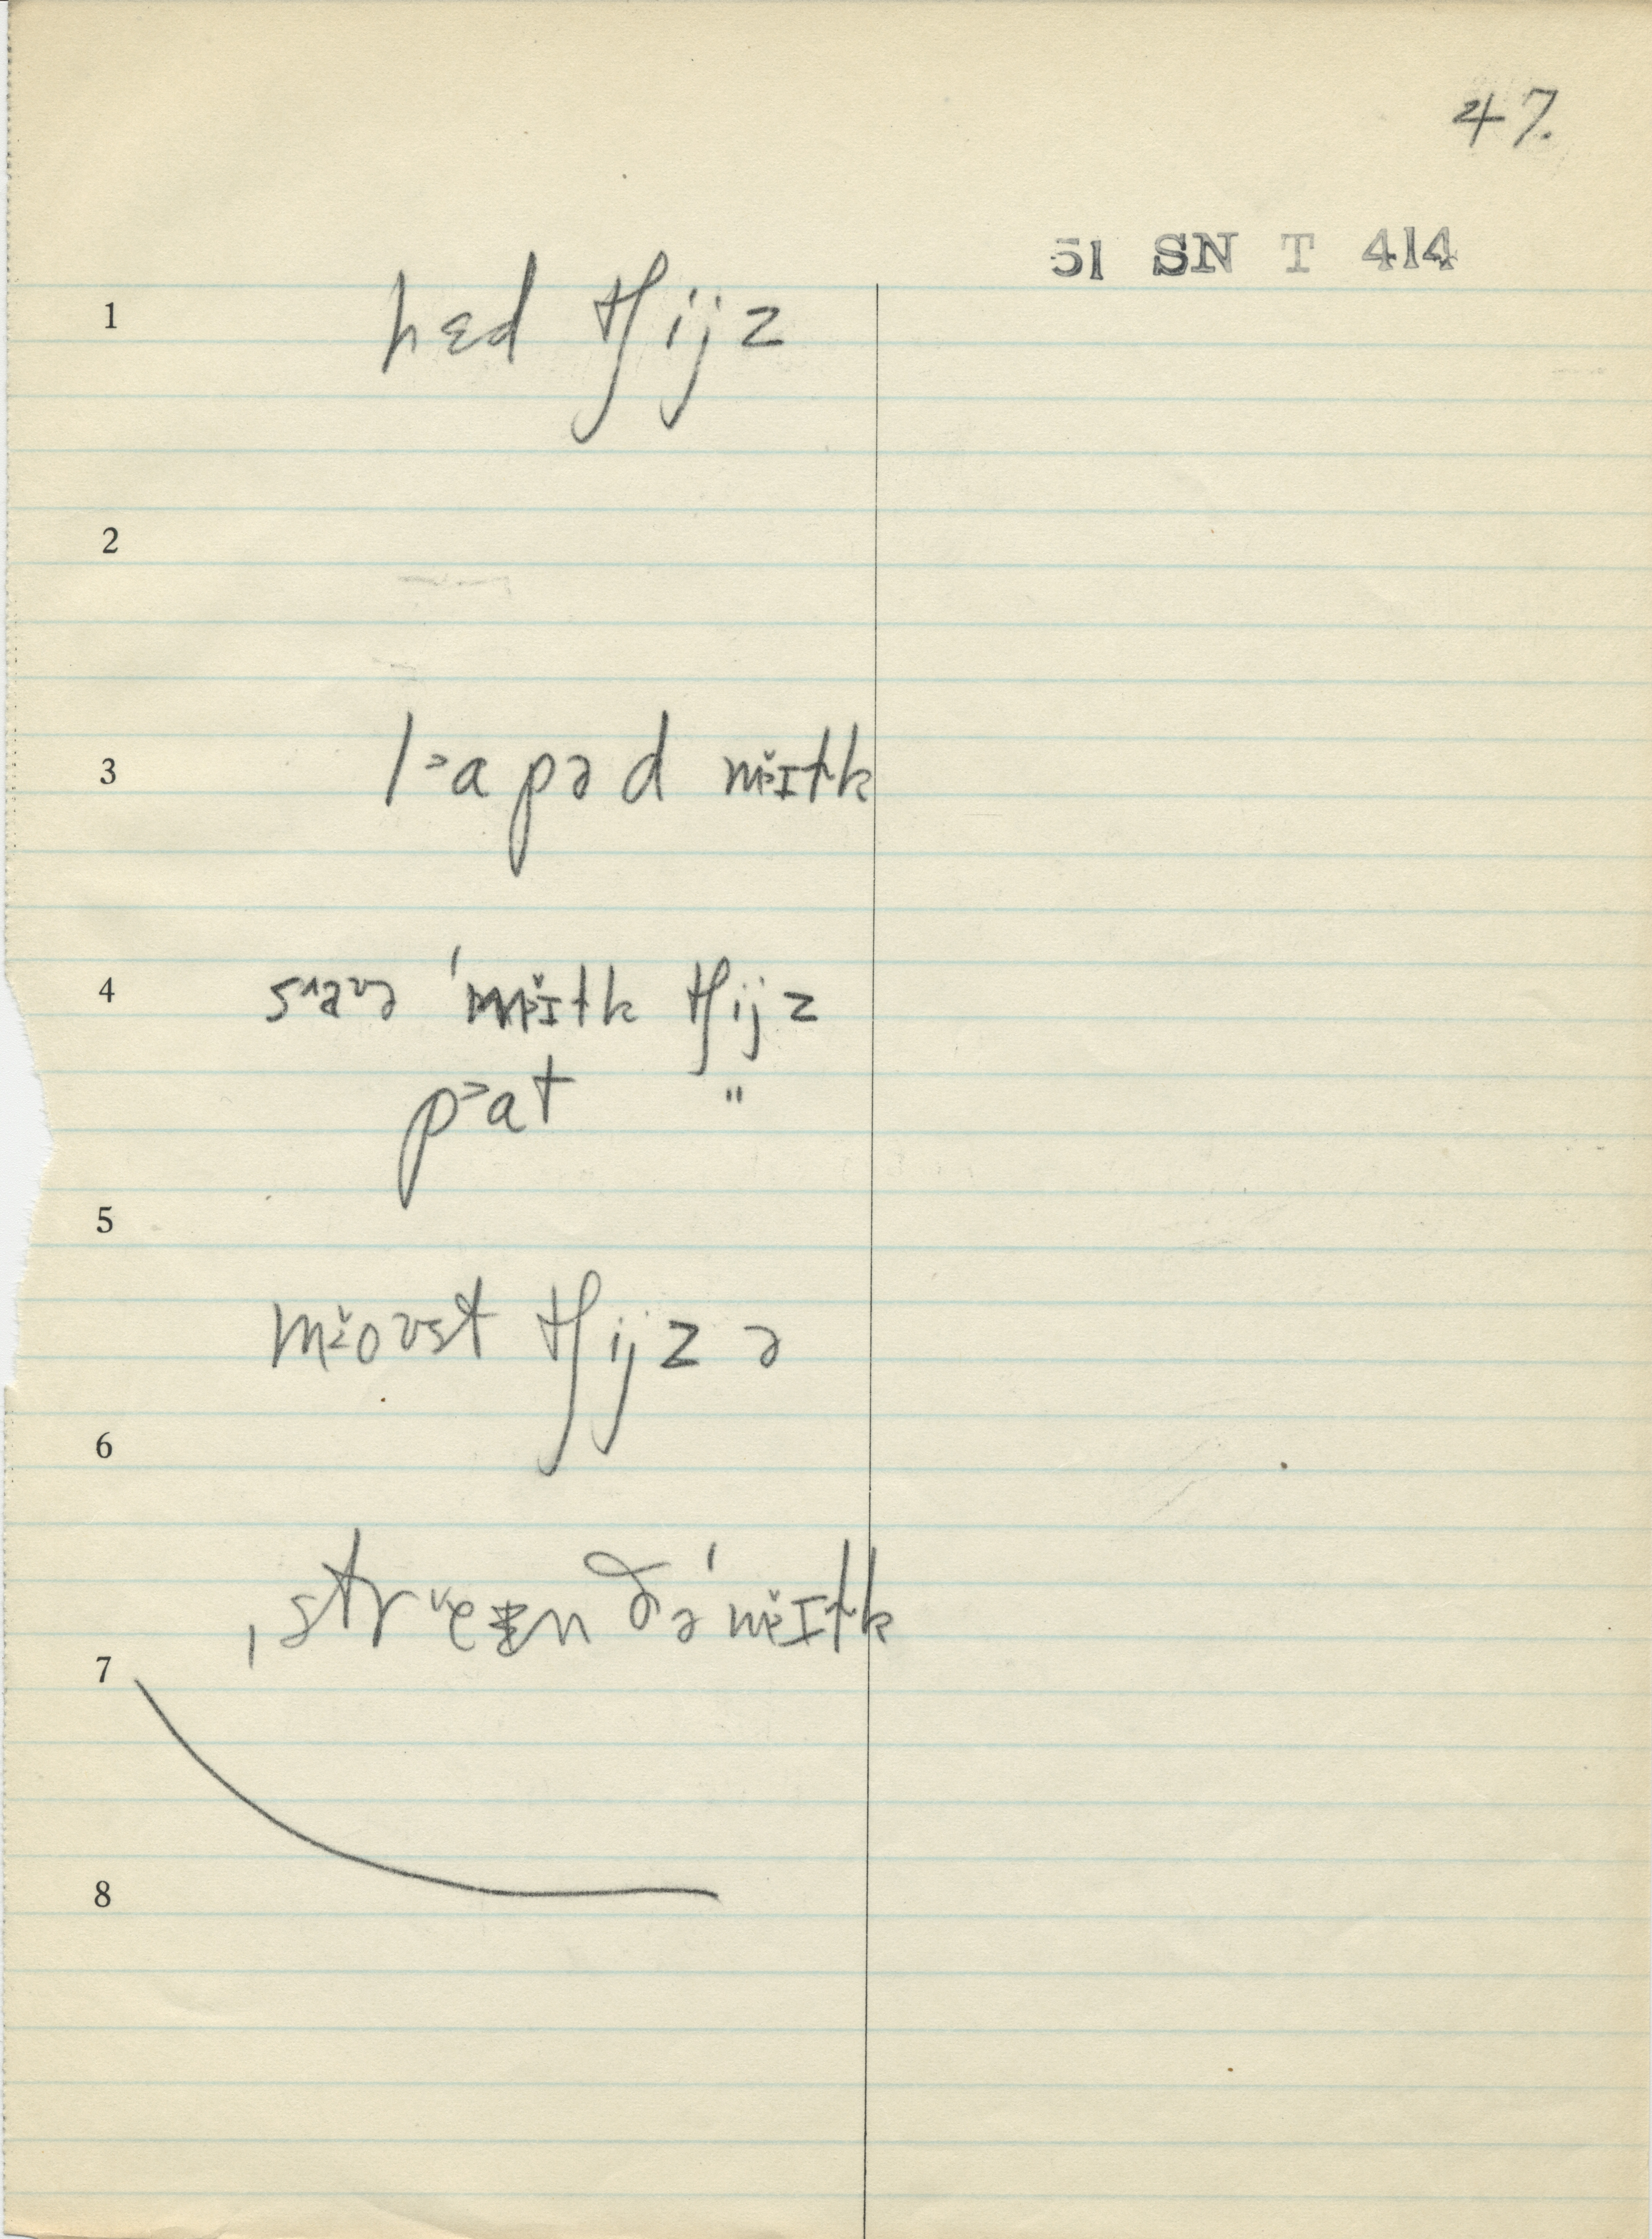 47.
51 SN T 414
1 hɛd tʃijz
2
3 l˃apəd mɪ̌tk
4 s^aʊə ˈmɪ̌tk tʃijz
p˃at "
5
moʊst tʃijzə
6
ˌstrᵛeɪn ðəˈmɪ̌tk
7
8